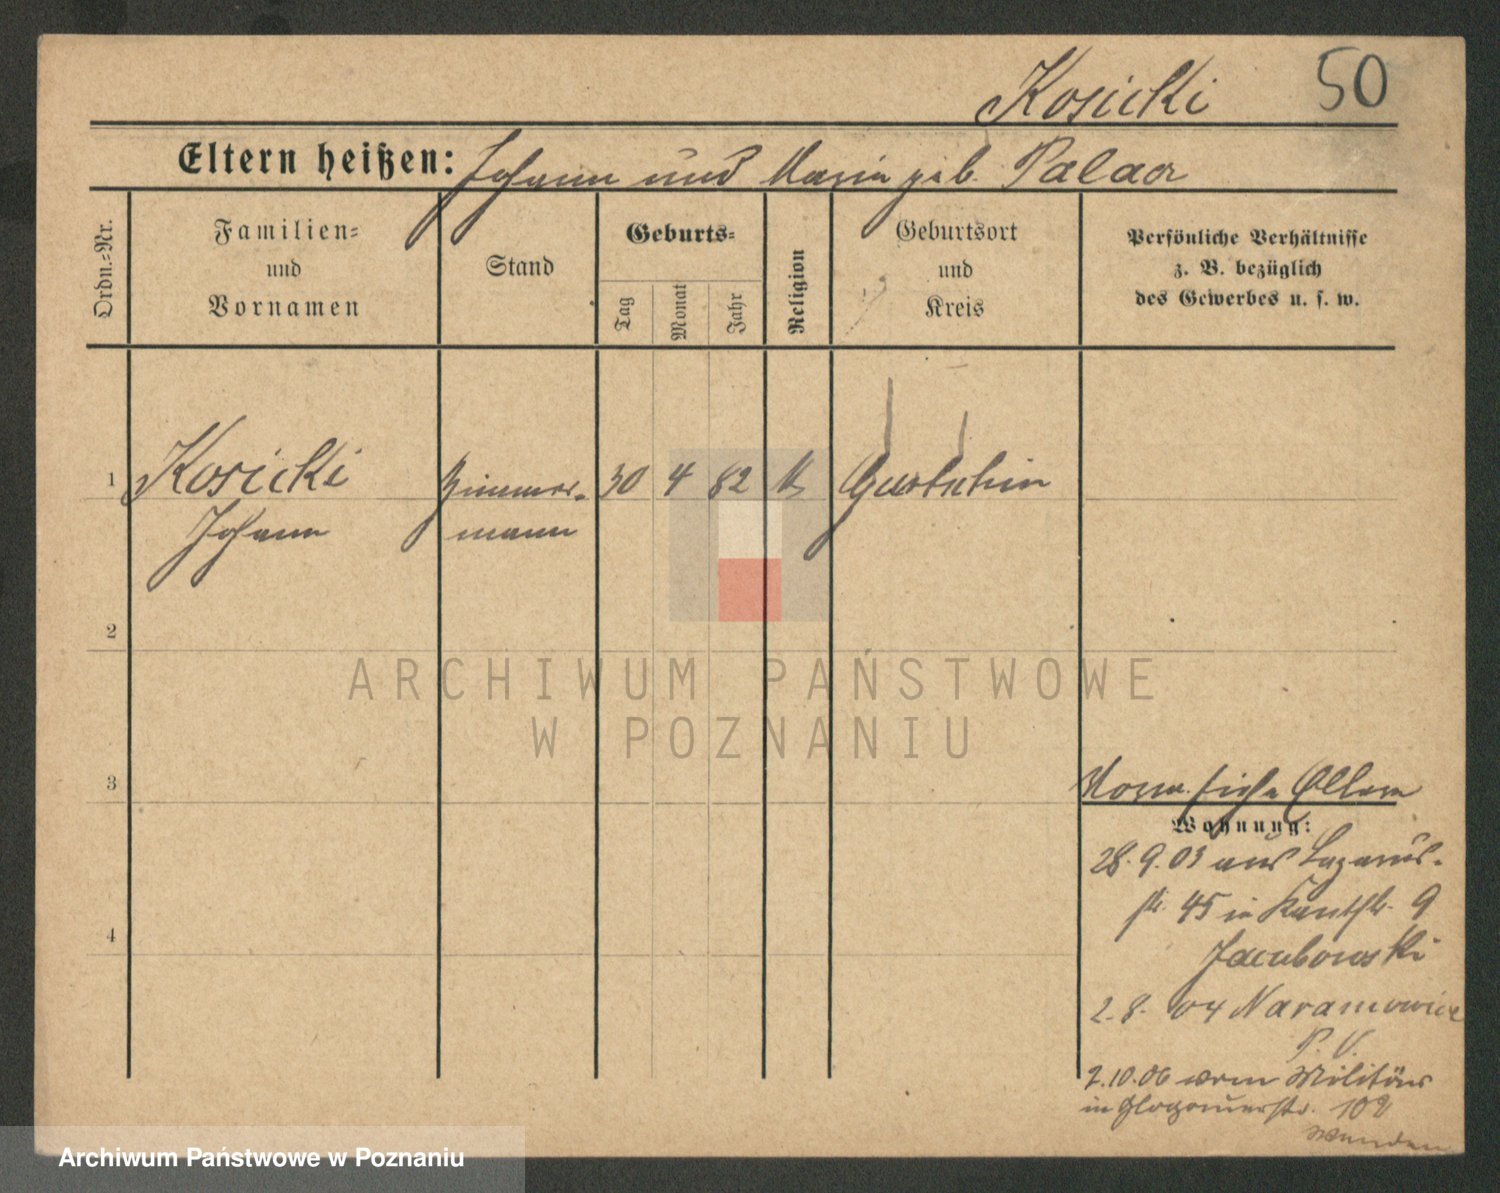 Kosicki 50
Eltern heißen: Johann und Maria geb. Palacz
Ordn.-Nr.
Familien-
und
Vornamen
Stand
Geburts-
Tag
Monat
Jahr
Religion
Geburtsort
und
Kreis
Persönliche Verhältnisse
z. B. bezüglich
des Gewerbes u. s. w.
1 Kosicki Zimmer- 30 4 82 k Gurtschin
Johann mann
2
3
4
Vorm. siehe Eltern
Wohnung:
28.9.03 aus Lazarus-
str. 45 in Kantstr. 9
Jacubowski
2.8.04 Naramowice
P. V.
2.10.06 vom Militär
in Glogauerstr. 102
wenden
ARCHIWUM PAŃSTWOWE
W POZNANIU
Archiwum Państwowe w Poznaniu